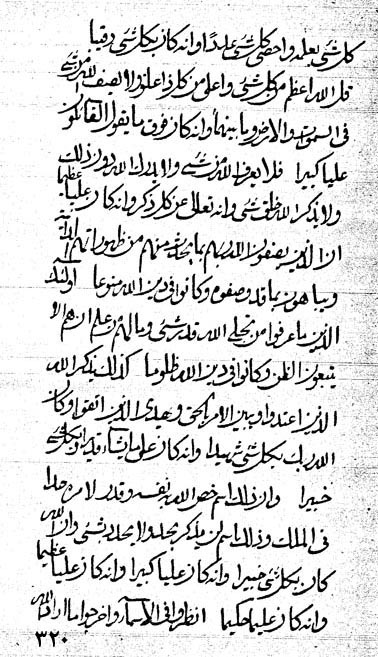 كل شيء بعلمه واحصى كل شيء عددا وانه كان بكل شيء رقيبا
قل الله اعظم من كل شيء واعلى من كل ذا علو لا يصف الله من شيء
فى السموات والارض وما بينهما وانه كان فوق ما يقول القائلون
عليا كبيرا فلا يعرف الله من شيء ولا يدرك الله دون ذلك
ولا يذكر الله خلق شيء وانه تعالى عن كل ذكر وانه كان عليا عظيما
ان الذين يصفون الله ربهم بما منهم من ظهورات
ويباهون بما قد وصفوه وكانوا فى دين الله منوعا اولئك
الذين ما عرفوا من تجلى الله قدر شيء وما لهم من علم ان هم الا
يتبعون الظن وكانوا فى دين الله ظلوما كذلك يذكر الله
الذين اعتدوا وبين الامر بالحق ويهدى الذين اتقوا وكان
الله ربك بكل شيء شهيدا وانه كان على ما يشاء قديرا وبكل شيء
خبيرا وان ذلك اسم خص الله به نفسه وقدر لامره حدا
فى الملك وذلك اسم لن يذكر بحد ولا يحدد بشيء وان الله
كان بكل شيء خبيرا وانه كان عليا كبيرا وانه كان عليا عظيما
وانه كان عليما حكيما انظروا فى الاسماء واخرجوا ما اراد الله
٣٢٠